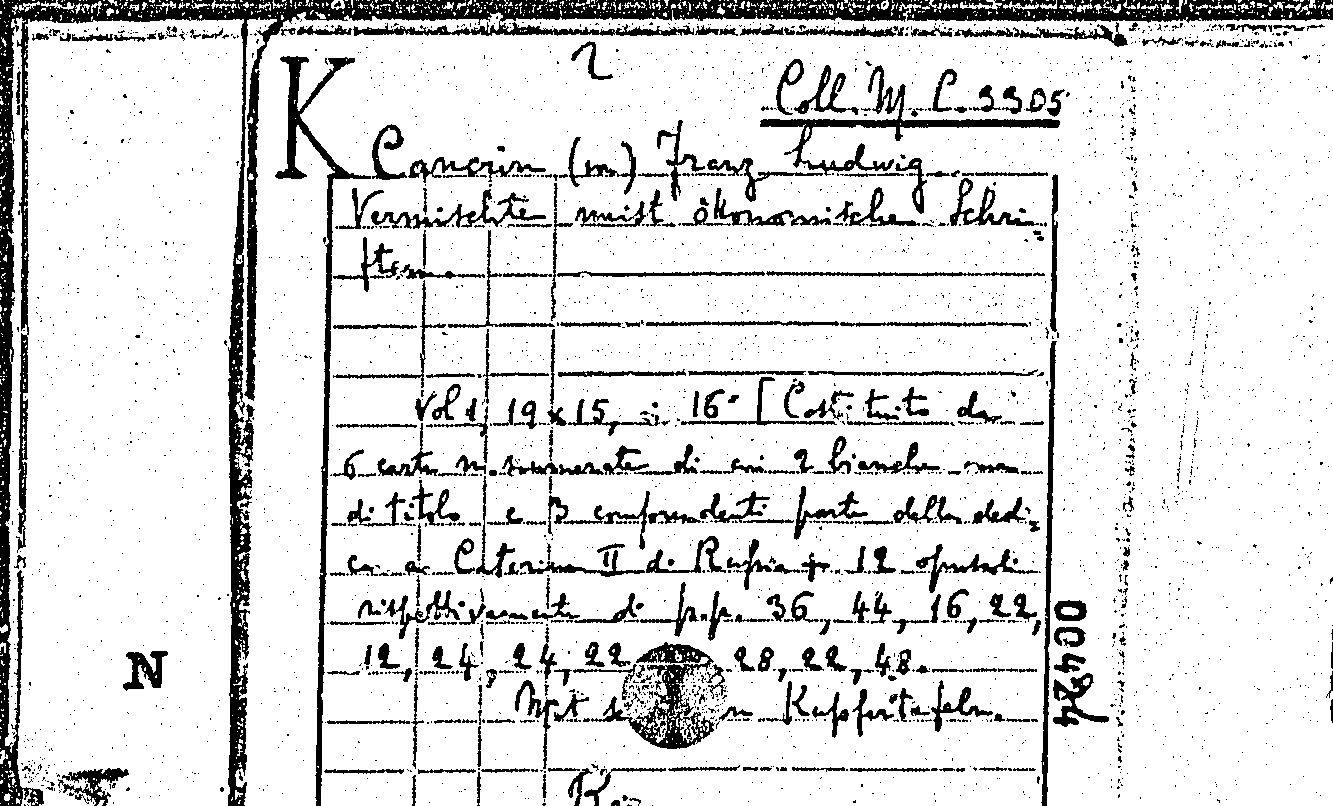 2
Coll. M. C. 3305
K Cancrin (m.) Franz Ludwig.
Vermischte meist ökonomische Schri=
ften.
Vol 1, 19x15, 16° [Costituito da
6 carte n. numerate di cui 2 bianche una
di titolo e 3 comprendenti parte della dedi=
ca a Caterina II di Russia + 12 opuscoli
rispettivamente di p.p. 36, 44, 16, 22,
12, 24, 24, 22 28, 22, 48.
Mit Kupfertafeln.
N
00424